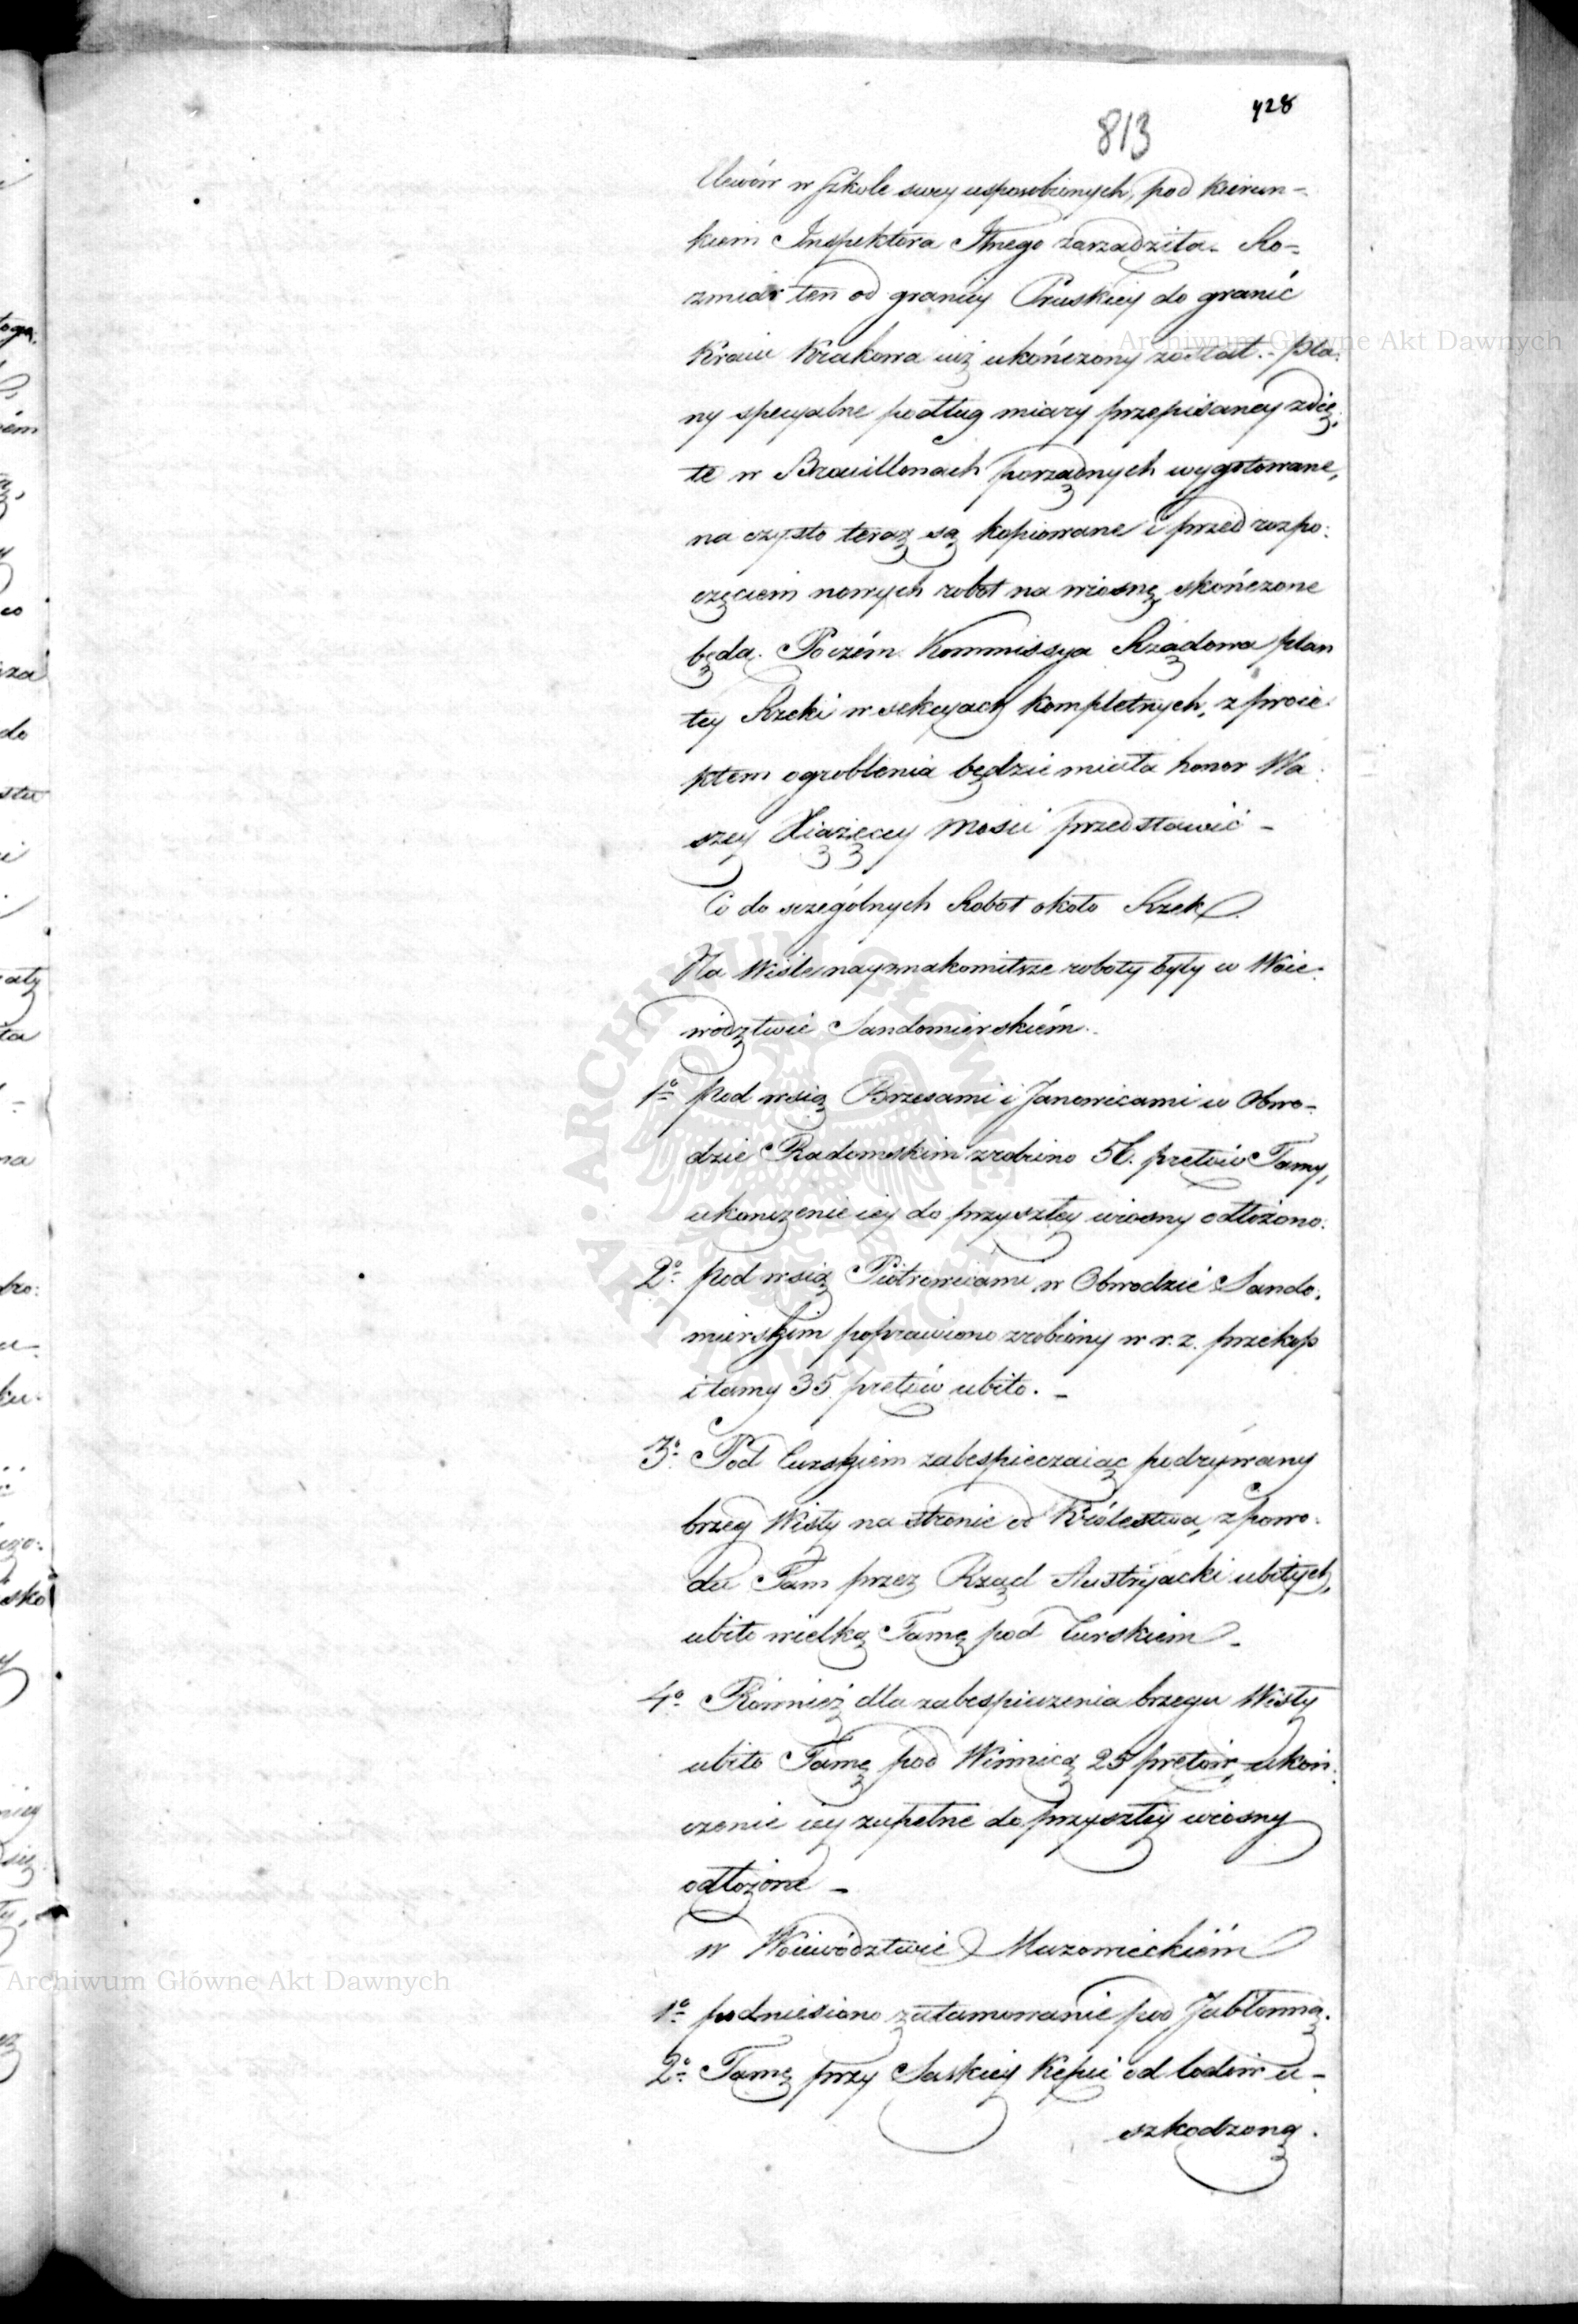 428
813
Uczniów w szkole swey usposobionych, pod kierun-
kiem Inspektora Jlnego zarządziła. Ro-
zmiar ten od granicy Pruskiey do granic
Kraiu Krakowa iuż ukończony został. - Pla:
ny specyalne podług miary przepisaney zdię:
te w Brouillonach porządnych wygotowane,
na czysto teraz są kopiowane i przed rozpo:
częciem nowych robot na wiosnę skończone
będą. Poczém Kommissya Rządowa plan
tey Rzeki w sekcyach kompletnych, z proie:
ktem ogroblenia będzie miała honor Wa:
szey Xiążęcey Mości przedstawić -
Co do szczególnych Robot około Rzek.
Na Wiśle nayznakomitsze roboty były w Woie:
wództwie Sandomierskiém.
1º Pod wsią Brzesami i Janowicami w Obwo-
dzie Radomskim zrobiono 56. prętów Tamy,
ukończenie iey do przyszłey wiosny odłożono.
2º Pod wsią Piotrowicami w Obwodzie Sando:
mierskim poprawiono zrobiony w r. z. przekop
i tamy 35 prętów ubito. -
3º Pod Turskiem zabespieczaiąc podrywany
brzeg Wisły na stronie od Królestwa, z powo:
du Tam przez Rząd Austryacki ubitych,
ubito wielką Tamę pod Turskiem -
4º Również dla zabespieczenia brzegu Wisły
ubito Tamę pod Winnicą 25 prętów, ukoń:
czenie iey zupełne do przyszłey wiosny
odłożone -
w Woiewództwie Mazowieckiém
1º podniesiono zatamowanie pod Jabłonną.
2º Tamę przy Saskiey Kępie od lodów u-
szkodzoną.
Archiwum Główne Akt Dawnych
Archiwum Główne Akt Dawnych